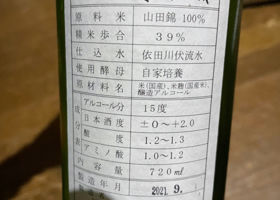 原料米 山田錦 100%
精米歩合 39%
仕込水 依田川伏流水
使用酵母 自家培養
原材料名 米(国産)、米麹(国産米)、
醸造アルコール
成分表
アルコール分 15度
日本酒度 ±0～+2.0
酸度 1.2～1.3
アミノ酸 1.0～1.2
内容量 720ml
製造年月 2021.9.